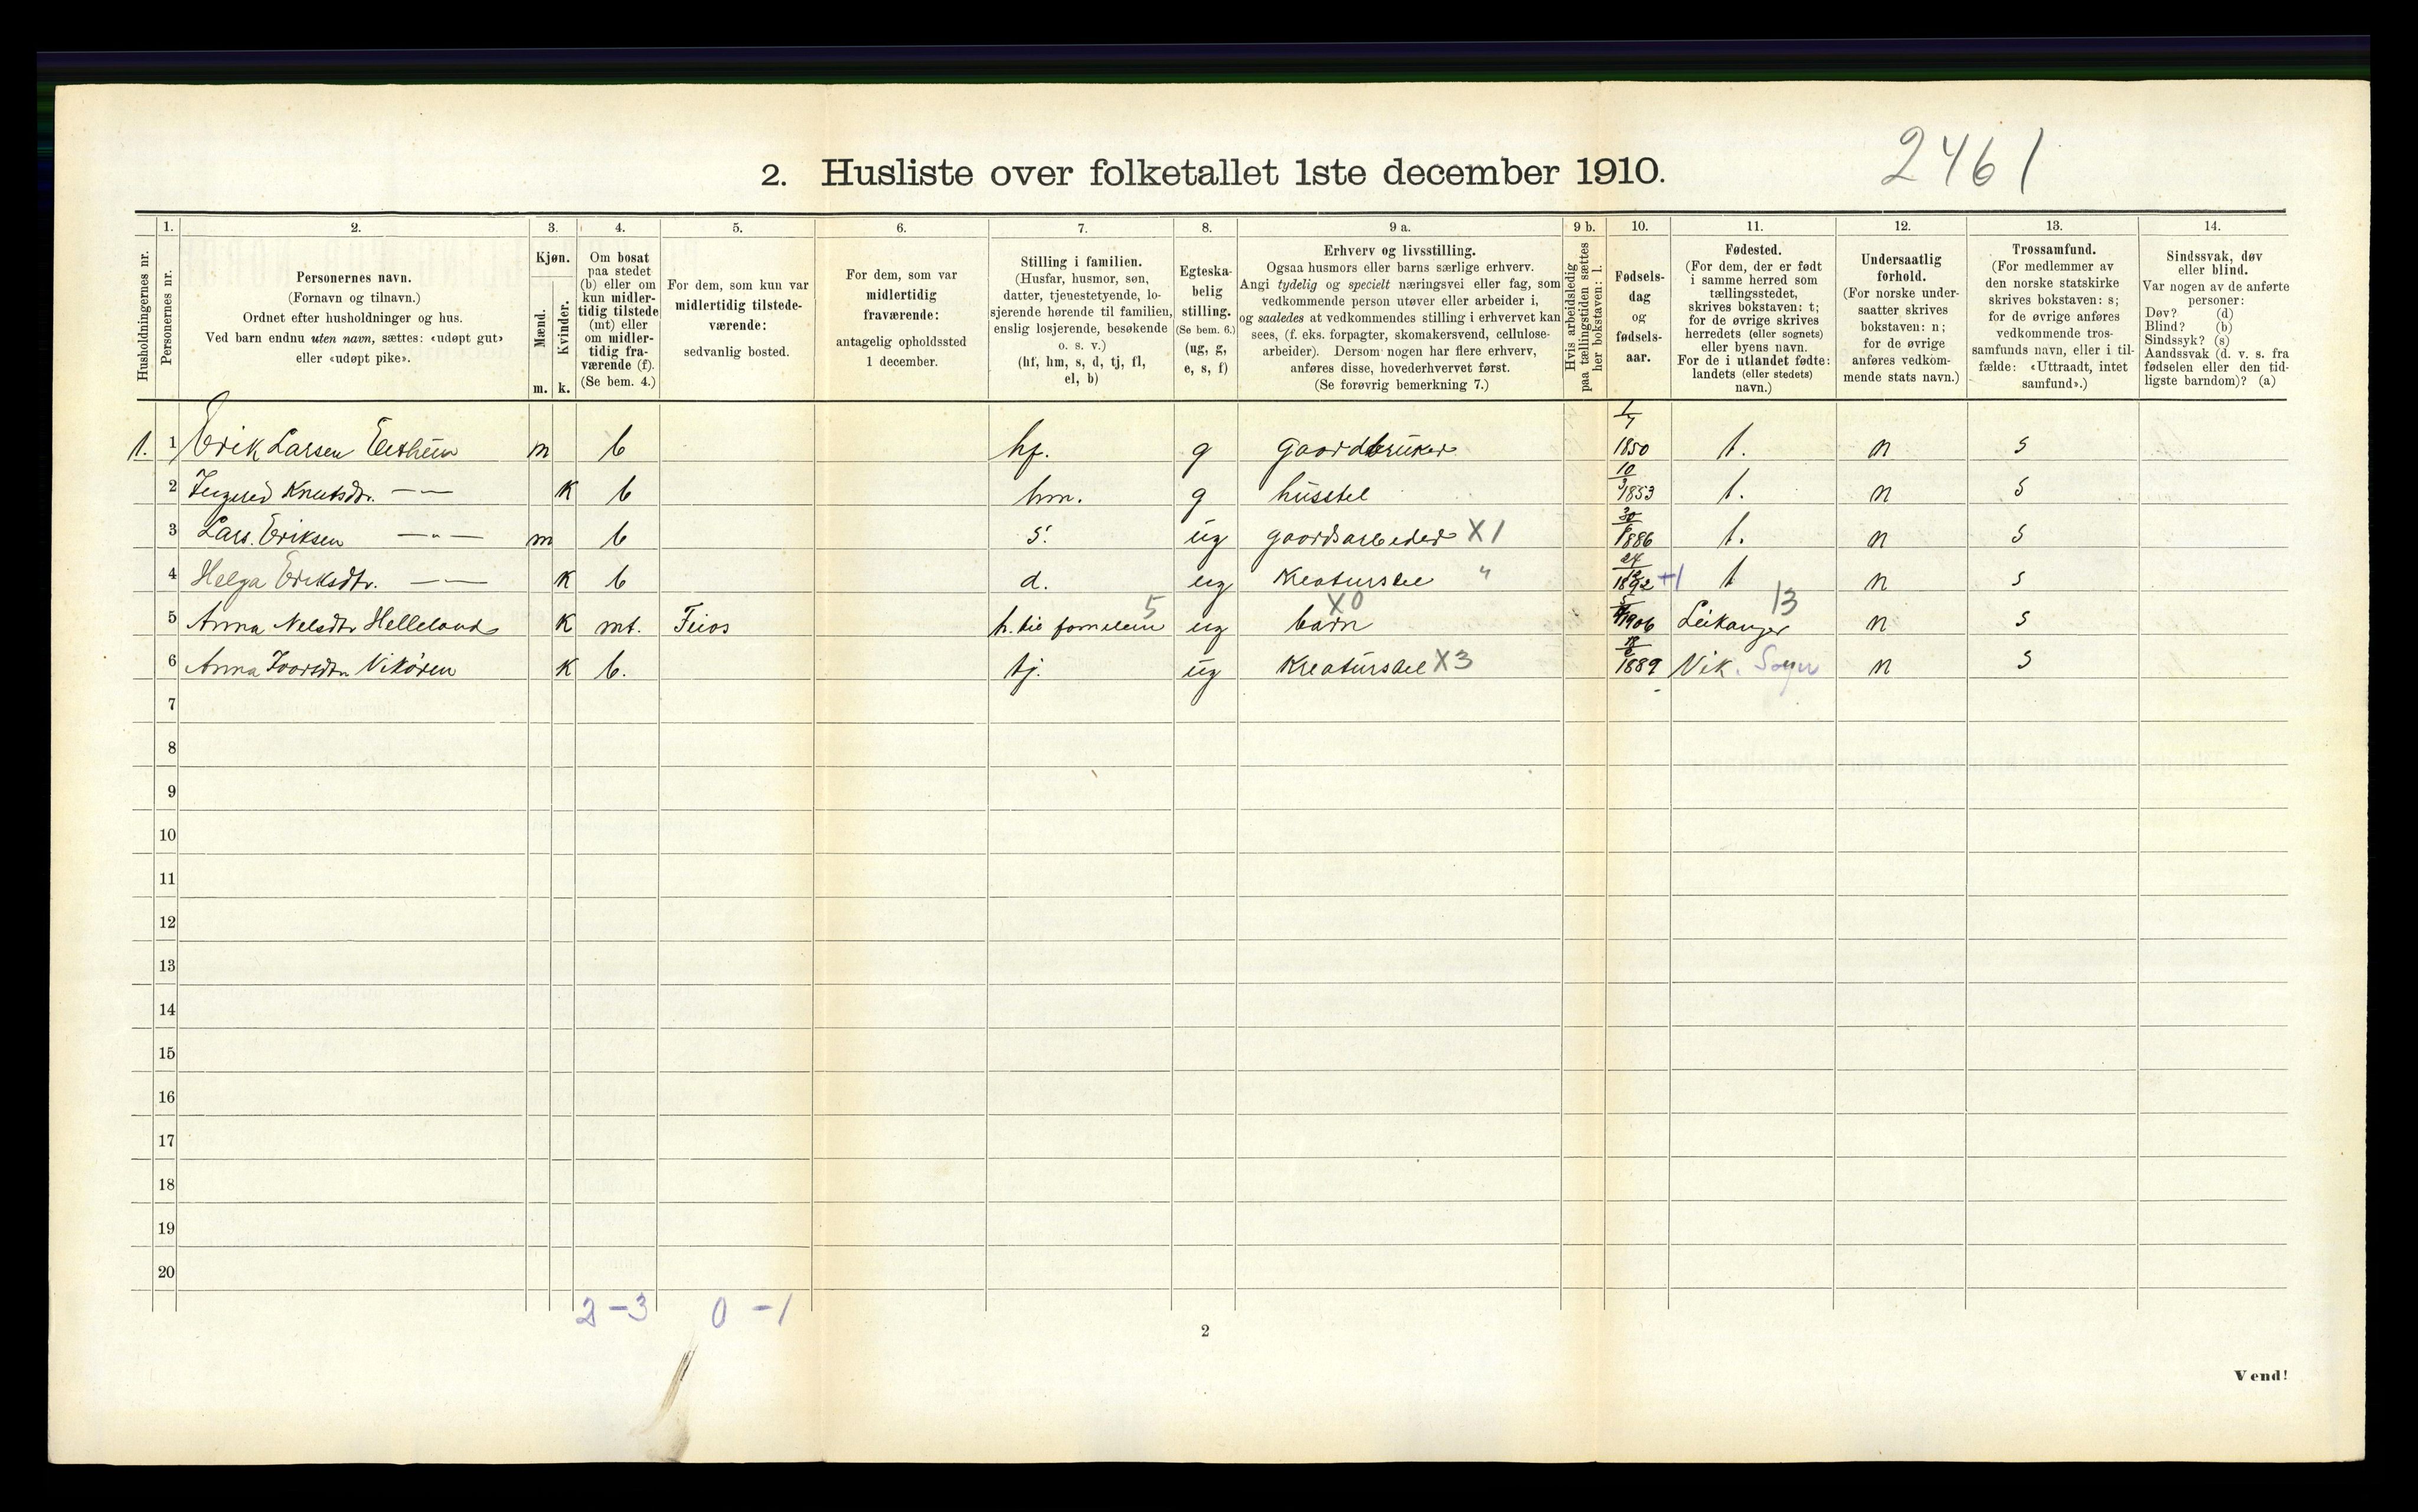 2461
2. Husliste over folketallet 1ste december 1910.
Husholdningernes nr.
1.
Personernes nr.
2.
Personernes navn.
(Fornavn og tilnavn.)
Ordnet efter husholdninger og hus.
Ved barn endnu uten navn, sættes: «udøpt gut»
eller «udøpt pike».
3.
Kjøn.
Mænd.
m.
Kvinder.
k.
4.
Om bosat
paa stedet
(b) eller om
kun midler-
tidig tilstede
(mt) eller
om midler-
tidig fra-
værende (f).
(Se bem. 4.)
5.
For dem, som kun var
midlertidig tilstede-
værende:
sedvanlig bosted.
6.
For dem, som var
midlertidig
fraværende:
antagelig opholdssted
1 december.
7.
Stilling i familien.
(Husfar, husmor, søn,
datter, tjenestetyende, lo-
sjerende hørende til familien,
enslig losjerende, besøkende
o. s. v.)
(hf, hm, s, d, tj, fl,
el, b)
8.
Egteska-
belig
stilling.
(Se bem. 6.)
(ug, g,
e, s, f)
9 a.
Erhverv og livsstilling.
Ogsaa husmors eller barns særlige erhverv.
Angi tydelig og specielt næringsvei eller fag, som
vedkommende person utøver eller arbeider i,
og saaledes at vedkommendes stilling i erhvervet kan
sees, (f. eks. forpagter, skomakersvend, cellulose-
arbeider). Dersom nogen har flere erhverv,
anføres disse, hovederhvervet først.
(Se forøvrig bemerkning 7.)
9 b.
Hvis arbeidsledig
paa tællingstiden sættes
her bokstaven: l.
10.
Fødsels-
dag
og
fødsels-
aar.
11.
Fødested.
(For dem, der er født
i samme herred som
tællingsstedet,
skrives bokstaven: t;
for de øvrige skrives
herredets (eller sognets)
eller byens navn.
For de i utlandet fødte:
landets (eller stedets)
navn.)
12.
Undersaatlig
forhold.
(For norske under-
saatter skrives
bokstaven: n;
for de øvrige
anføres vedkom-
mende stats navn.)
13.
Trossamfund.
(For medlemmer av
den norske statskirke
skrives bokstaven: s;
for de øvrige anføres
vedkommende tros-
samfunds navn, eller i til-
fælde: «Uttraadt, intet
samfund».)
14.
Sindssvak, døv
eller blind.
Var nogen av de anførte
personer:
Døv? (d)
Blind? (b)
Sindssyk? (s)
Aandssvak (d. v. s. fra
fødselen eller den tid-
ligste barndom)? (a)
1. 1 Erik Larsen m b hf. g gaardbruker 1/7 1850 t. n s
2 Knutsdtr. — — k b hm. g husstel 10/3 1853 t. n s
3 Lars. Eriksen — " — m b s. ug gaardsarbeider X1 1886 t. n s
4 Helga Eriksdtr. — — k b d. ug Kreaturstel " 1892 +1 t n s
5 Anna Nelsdtr Helleland k mt. Feios h. til familien 5 ug barn X0 1906 Leikanger 13 n s
6 Anna Ivarsdtr Vikøren k b. tj. ug Kreaturstel X3 1889 Vik. Sogn n s
7
8
9
10
11
12
13
14
15
16
17
18
19
20
2 - 3 0 - 1
2
Vend!